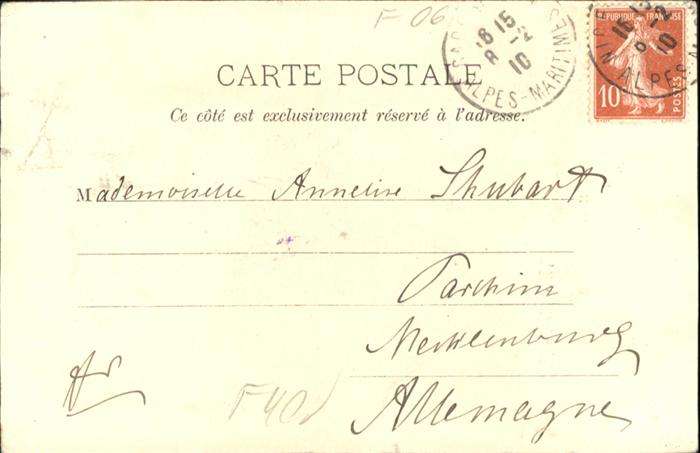 F 06
16 15
8 -2
10
ALPES-MARITIMES
REPUBLIQUE FRANÇAISE
10
POSTES
16 15
8 2
10
ALPES M
CARTE POSTALE
Ce côté est exclusivement réservé à l'adresse.
Mademoiselle Annelise Shubart
Parchim
Mecklenburg
Allemagne
F40